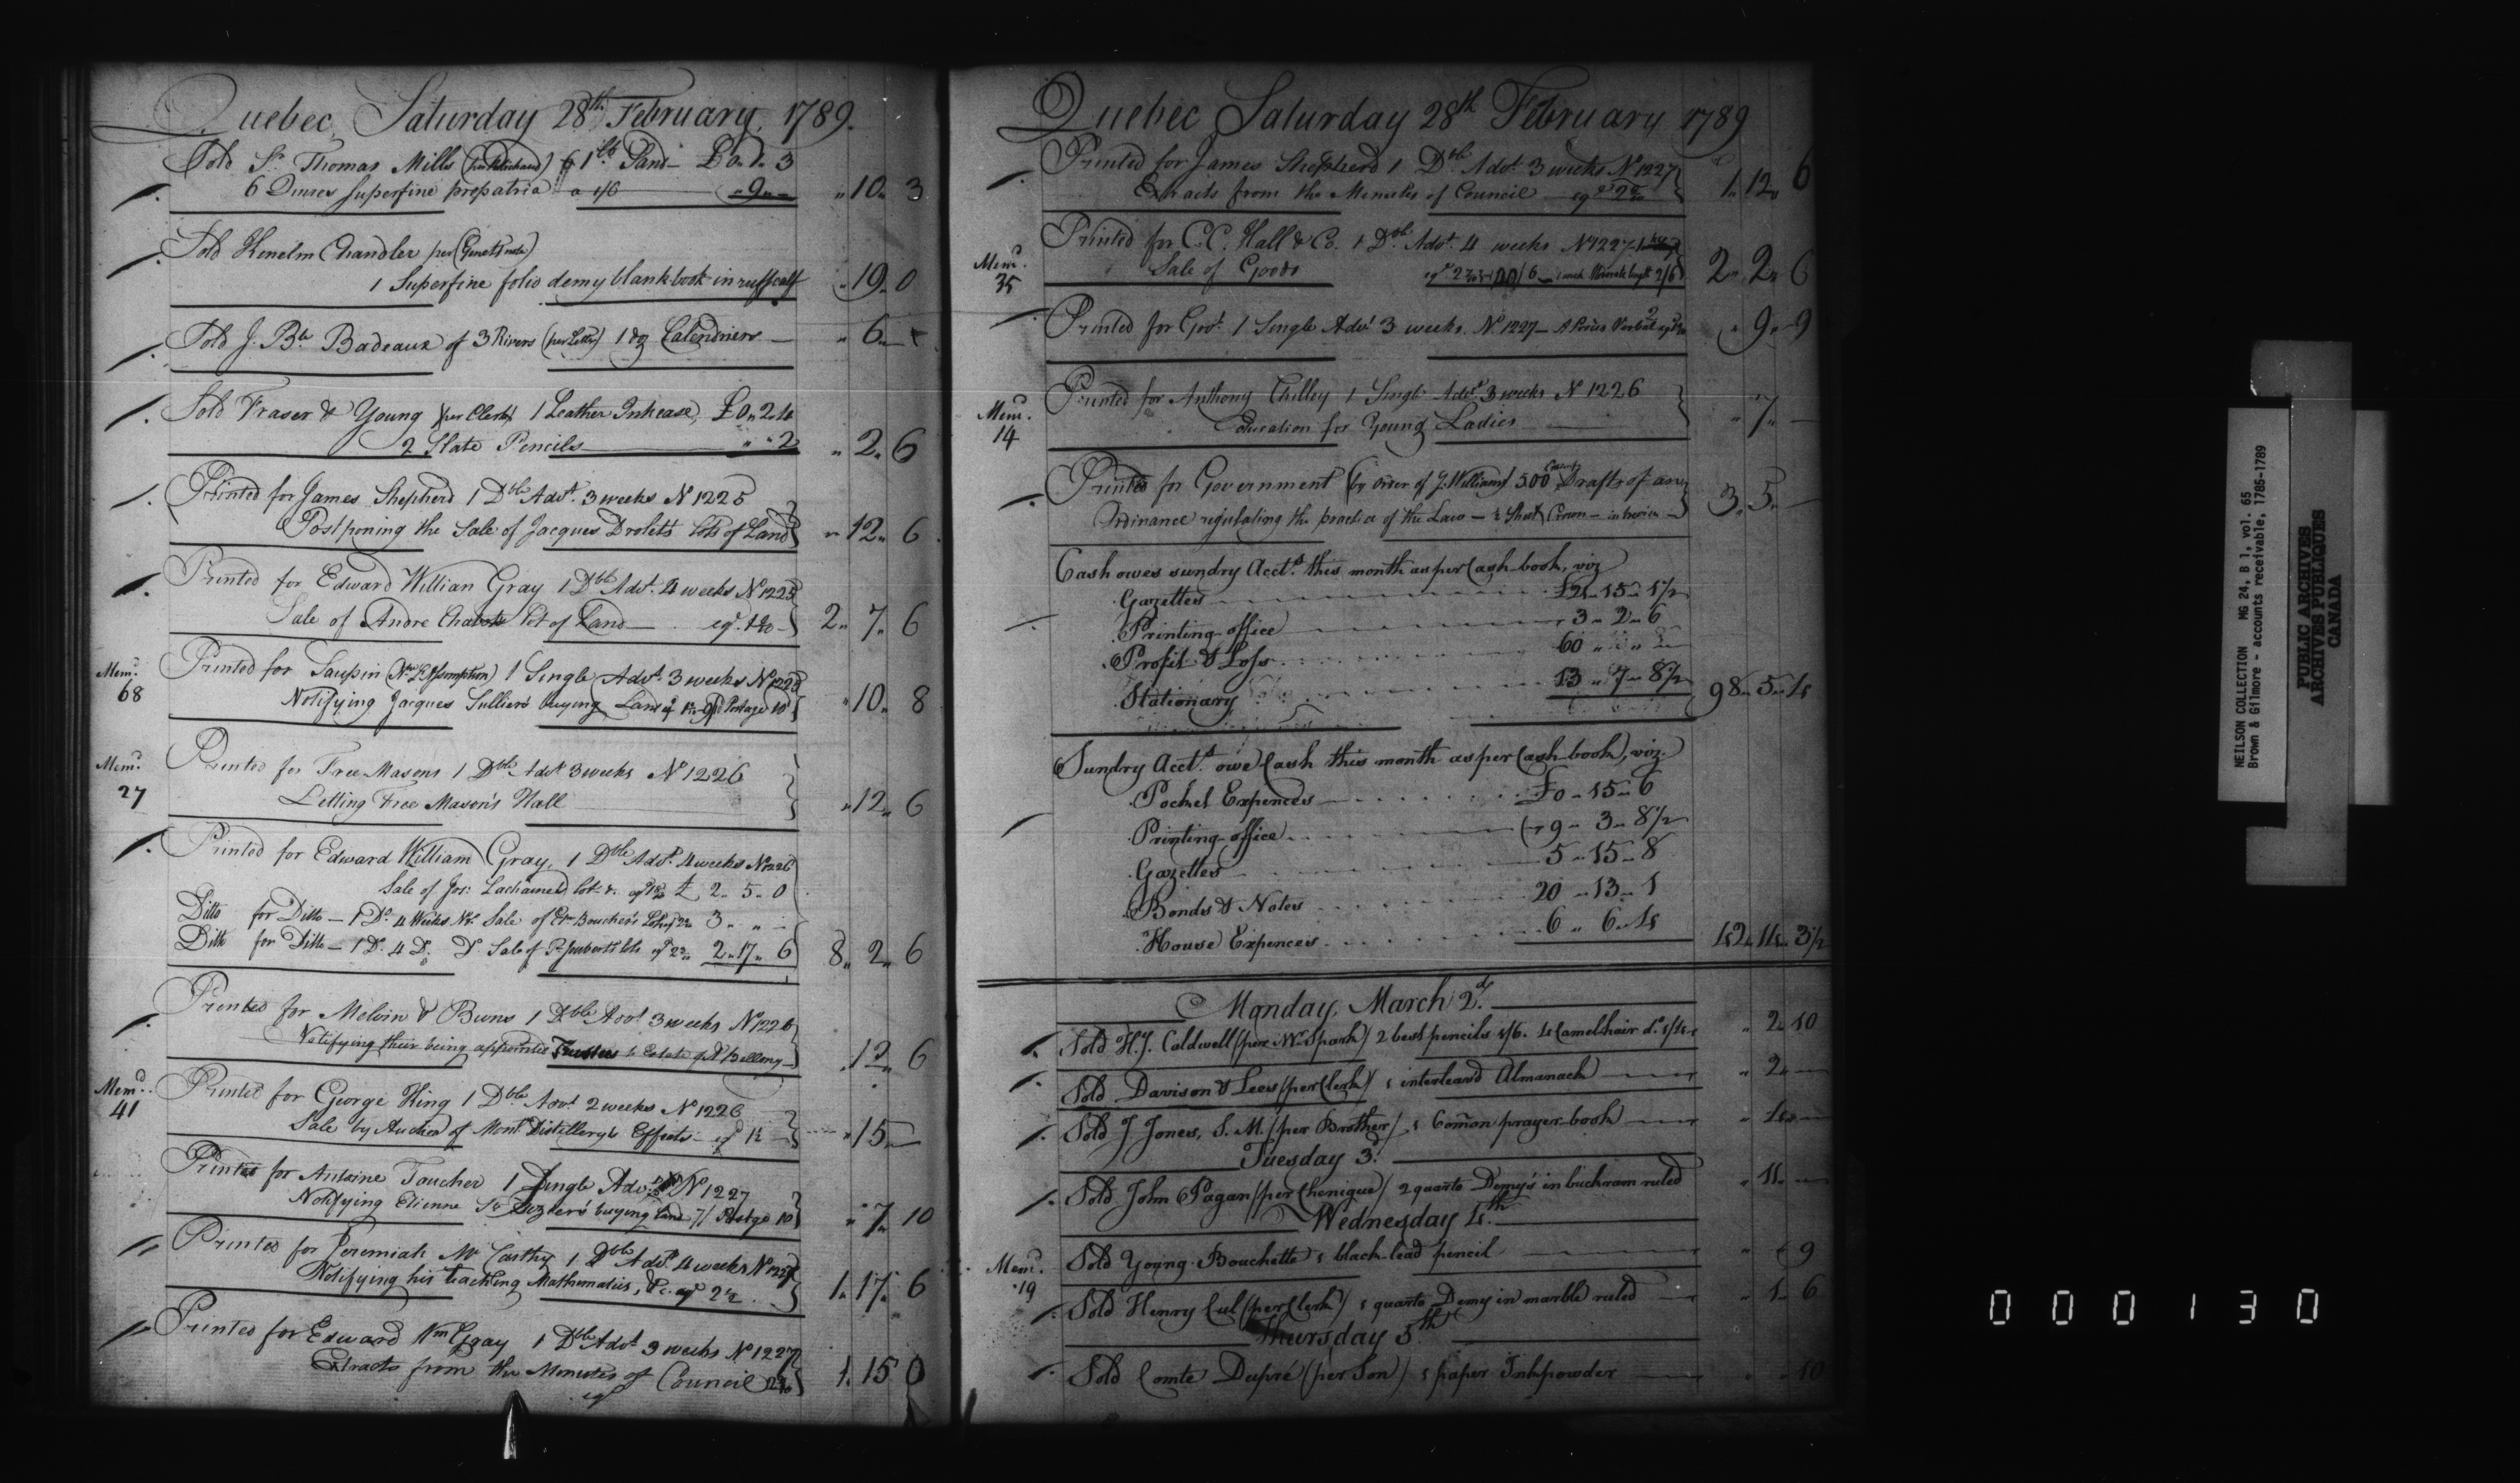 Quebec, Saturday 28th February, 1789.
Sold Sr. Thomas Mills 1 lb Sand — £0.1.3
6 Quires superfine propatria a 1/6 „9„— „10„3
Sold Kenelm Chandler per
1 Superfine folio demy blank book in ruff calf „19„0
Sold J. Bte Badeaux of 3 Rivers (per Letter) 1 dz Calendriers — „6„
Sold Fraser & Young (per Clerk) 1 Leather Inkcase, £0„2„4
2 Slate Pencils „„2 „2„6
Printed for James Shepherd 1 Dble Advt. 3 weeks N 1225
Postponing the Sale of Jacques Drolets lots of Land „12„6
Printed for Edward William Gray 1 Dble Advt. 4 weeks No 1225
Sale of Andre Lot of Land 2„7„6
Memd. 68
Printed for Saupin 1 Single Advt. 3 weeks No 1225
Notifying Jacques buying Land Postage 10 „10„8
Memd. 27
Printed for Free Masons 1 Dble Advt 3 weeks No 1226
Letting Free Mason's Hall „12„6
Printed for Edward William Gray, 1 Dble Advt. 4 weeks No 1226
Sale of Jos: lot £ 2„5„0
Ditto for Ditto — 1 Do. 4 Weeks No. Sale of 3„„—
Ditto for Ditto — 1 D. 4 D. D. Sale of 2„17„6 8„2„6
Printed for Melvin & Burns 1 Dble Advt 3 weeks No 1226
Notifying their being appointed Trustees to Estate of „12„6
Memd. 41
Printed for George King 1 Dble Advt 2 weeks No 1226
Sale by Auction of Mont. Distillery's Effects „15„—
Printed for Antoine 1 Single Advt. No 1227
Notifying Etienne buying Land 7/ Postge 10 „7„10
Printed for Jeremiah Mc Carthy 1 Dble Advt. 4 weeks No 1227
Notifying his teaching Mathematics, &c. eql 2½ 1„17„6
Printed for Edward Wm Gray 1 Dble Advt 3 weeks No 1227
Extracts from the Minutes of Council 1„15„0
Quebec Saturday 28th February 1789
Printed for James Shepherd 1 Dble Advt 3 weeks No 1227
Extracts from the Minutes of Council 1„12„6
Memd. 35
Printed for C.C. Hall & Co. 1 Dble Advt. 4 weeks No 1227
Sale of Goods 2„2„6
Printed for Govt. 1 Single Advt 3 weeks. No 1227 — „9„9
Memd. 14
Printed for Anthony 1 Single Advt 3 weeks N 1226
Education for Young Ladies „7„—
Printed for Government (by order of J. Williams) 500 Drafts of an
Ordinance regulating the practice of the Law — ½ Sheet Crown — 3„5„—
Cash owes sundry Acct.s this month as per Cash-book, viz
Gazettes £21„15„1½
Printing-office 3„2„6
Profit & Loss 60„„„
Stationary 13„7„8½ 98„5„4
Sundry Acct.s owe Cash this month as per Cash-book, viz.
Pocket Expences £0„15„6
Printing-office 9„3„8½
Gazettes 5„15„8
Bonds & Notes 20„13„1
House Expences 6„6„4 42„14„3½
Monday, March 2d.
Sold H.J. Caldwell (per Mr Spark) 2 best pencils 1/6. 4 Camelhair do. 1/4 „2„10
Sold Davison & Lees (per Clerk) 1 interleav'd Almanack „2„—
Sold J Jones, S.M. (per Brother) 1 Comon prayer-book „4„—
Tuesday 3d.
Sold John Pagan (per Chenique) 2 quarto Demy's in buckram ruled „11„—
Wednesday 4th
Memd. 19
Sold Young Bouchette 1 black-lead pencil „„9
Sold Henry Cul (per Clerk) 1 quarto Demy in marble ruled „1„6
Thursday 5th
Sold Comte Dupré (per Son) 1 paper Inkpowder „„10
NEILSON COLLECTION MG 24, B 1, vol. 65
Brown & Gilmore - accounts receivable, 1785-1789
PUBLIC ARCHIVES
ARCHIVES PUBLIQUES
CANADA
000130